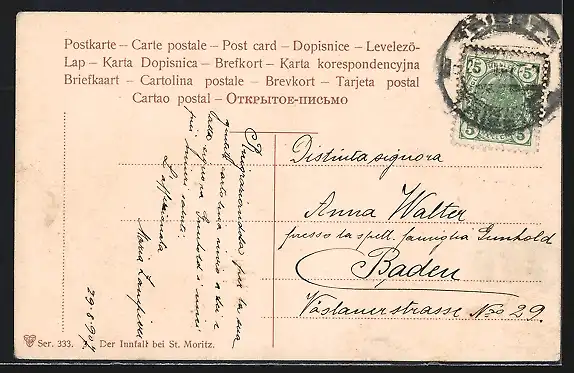 Postkarte – Carte postale – Post card – Dopisnice – Levelező-
Lap – Karta Dopisnica – Brefkort – Karta korespondencyjna
Briefkaart – Cartolina postale – Brevkort – Tarjeta postal
Cartao postal – Открытое-письмо
5 5
5 5
Ringraziandola per la sua
cartolina invio a lei e
alla signora Gunhold i miei
più saluti.
L'affezionata
Maria
29.8.907
Distinta signora
Anna Walter
presso la spett. famiglia Gunhold
Baden
Vöslauerstrasse No 29.
Ser. 333. Der Innfall bei St. Moritz.